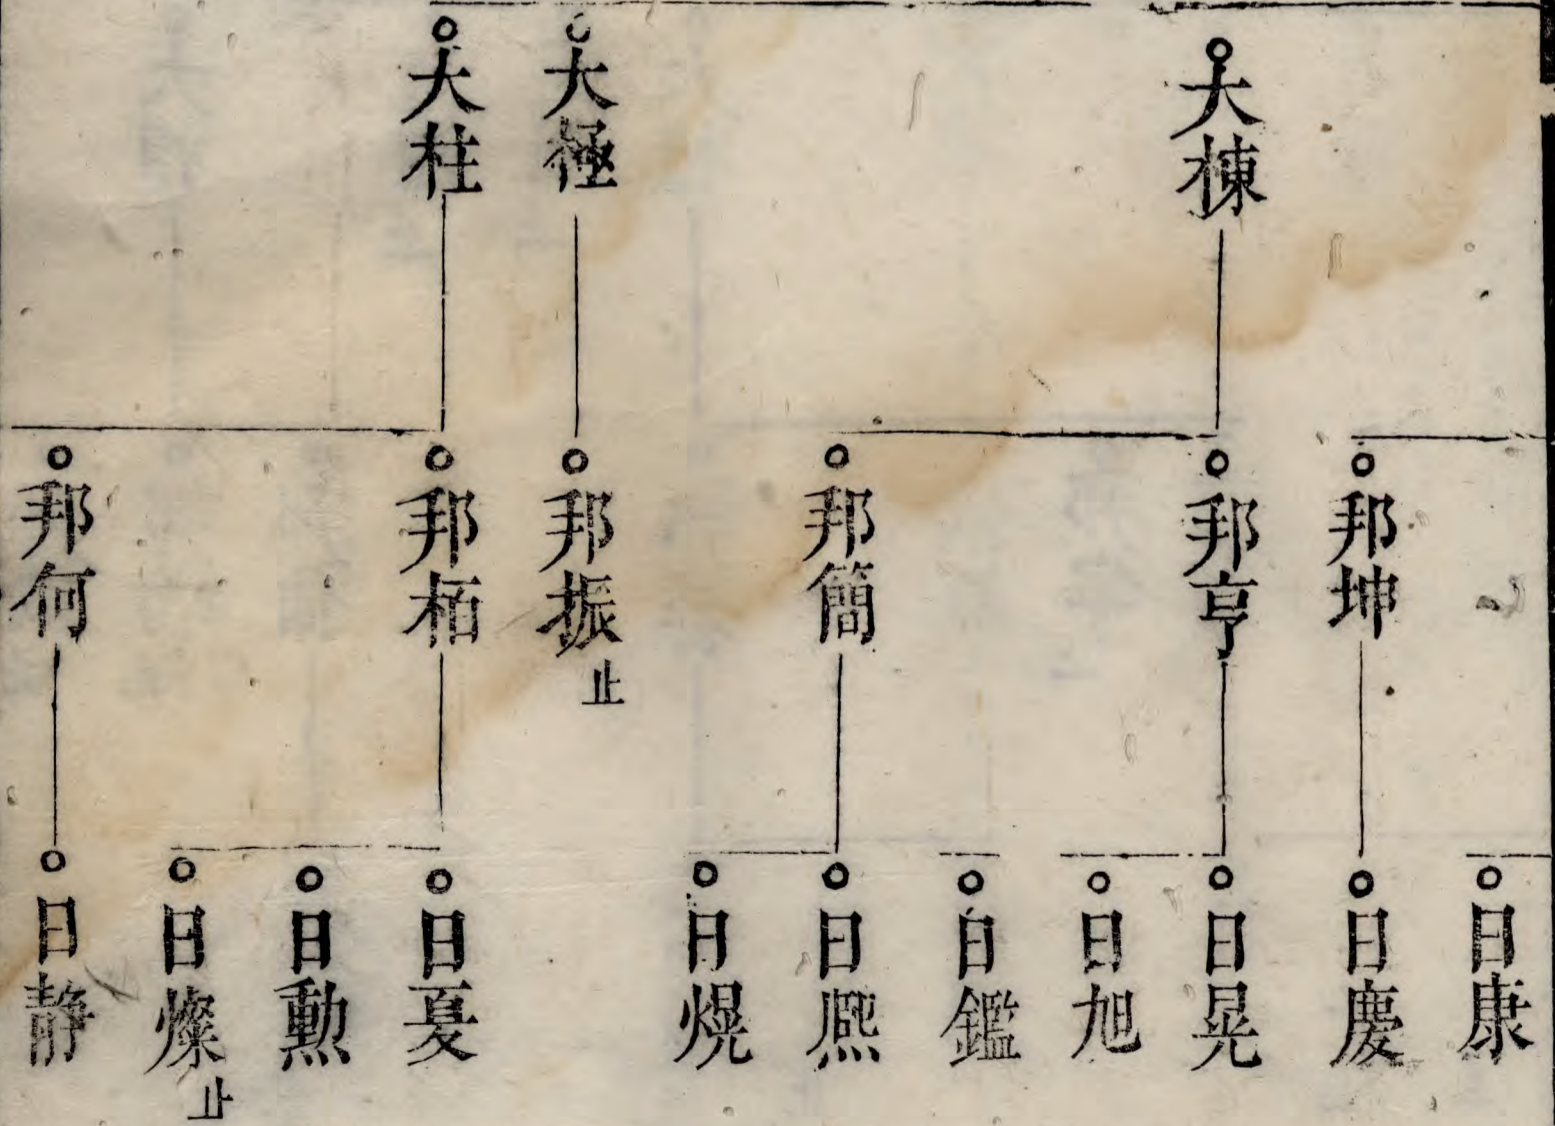 大棟
大極
大柱
邦坤
邦亨
邦簡
邦振止
邦栢
邦何
日康
日慶
日晃
日旭
日鑑
日熈
日熀
日戞
日勳
日燦止
日静